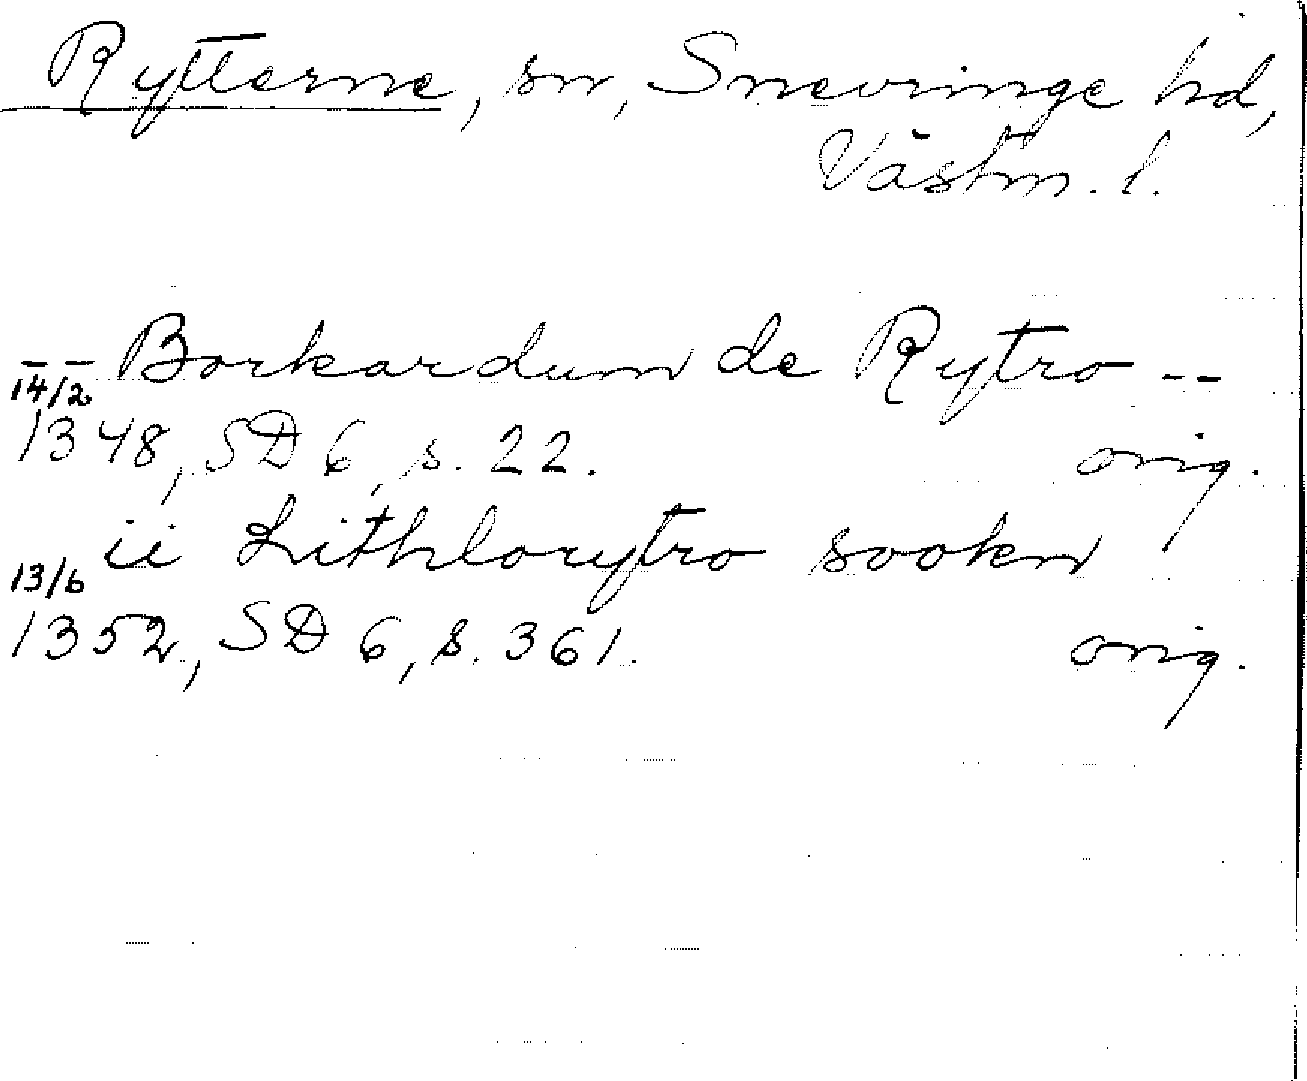 Rytterne, sn, Snevringe hd,
Västm. l.
-- Borkardum de Rytro --
14/2 1348, SD 6, s. 22. orig.
ii Lithlorytro sookn
13/6 1352, SD 6, s. 361. orig.